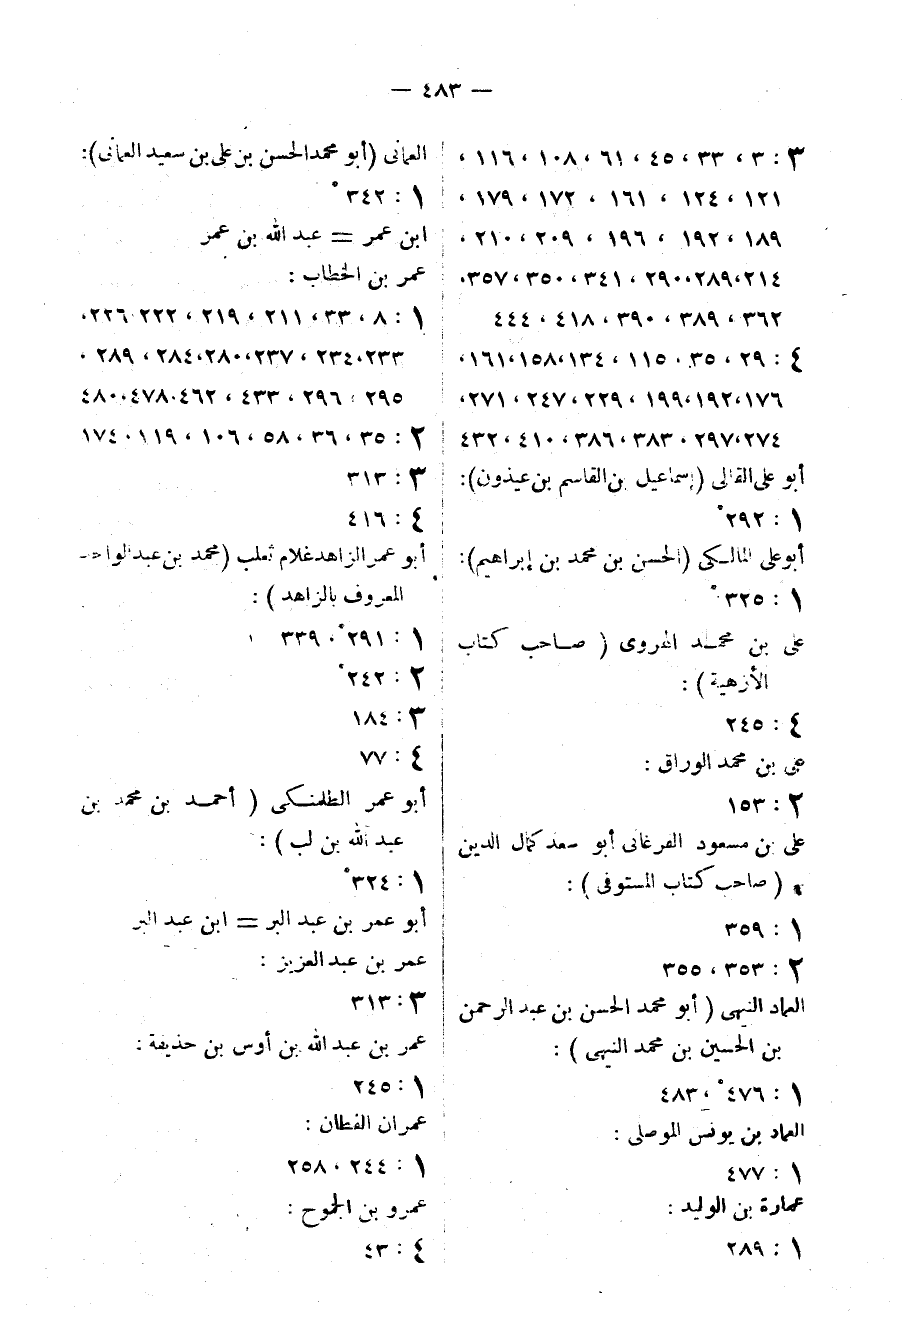 — ٤٨٣ —
٣ : ٣ ، ٣٣ ، ٤٥ ، ٦١ ، ١٠٨ ، ١١٦ ،
١٢١ ، ١٢٤ ، ١٦١ ، ١٧٢ ، ١٧٩ ،
١٨٩ ، ١٩٢ ، ١٩٦ ، ٢٠٩ ، ٢١٠ ،
٢١٤ ، ٢٨٩ ، ٢٩٠ ، ٣٤١ ، ٣٥٠ ، ٣٥٧ ،
٣٦٢ ، ٣٨٩ ، ٣٩٠ ، ٤١٨ ، ٤٤٤
٤ : ٢٩ ، ٣٥ ، ١١٥ ، ١٣٤ ، ١٥٨ ، ١٦١ ،
١٧٦ ، ١٩٢ ، ١٩٩ ، ٢٢٩ ، ٢٤٧ ، ٢٧١ ،
٢٧٤ ، ٢٩٧ ، ٣٨٣ ، ٣٨٦ ، ٤١٠ ، ٤٣٢
أبو على القالى (إسماعيل بن القاسم بن عيذون):
١ : ٢٩٢°
أبو على المالـكى (الحسن بن محمد بن إبراهيم):
١ : ٣٢٥°
على بن محمـد الهروى ( صـاحب كتاب
الأزهية ) :
٤ : ٢٤٥
على بن محمد الوراق :
٢ : ١٥٣
على بن مسعود الفرغانى أبو سعد كمال الدين
( صاحب كتاب المستوفى ) :
١ : ٣٥٩
٢ : ٣٥٣ ، ٣٥٥
العماد النهى ( أبو محمد الحسن بن عبد الرحمن
بن الحسين بن محمد النهى ) :
١ : ٤٧٦° ، ٤٨٣
العماد بن يونس الموصلى :
١ : ٤٧٧
عمارة بن الوليد :
١ : ٢٨٩
العمانى (أبو محمد الحسن بن على بن سعيد العمانى):
١ : ٣٤٢°
ابن عمر = عبد الله بن عمر
عمر بن الخطاب :
١ : ٨ ، ٣٣ ، ٢١١ ، ٢١٩ ، ٢٢٢ ، ٢٢٦ ،
٢٣٣ ، ٢٣٤ ، ٢٣٧ ، ٢٨٠ ، ٢٨٤ ، ٢٨٩ ،
٢٩٥ ، ٢٩٦ ، ٤٣٣ ، ٤٦٢ ، ٤٧٨ ، ٤٨٠
٢ : ٣٥ ، ٣٦ ، ٥٨ ، ١٠٦ ، ١١٩ ، ١٧٤
٣ : ٣١٣
٤ : ٤١٦
أبو عمر الزاهد غلام ثعلب (محمد بن عبد الواحد
المعروف بالزاهد ) :
١ : ٢٩١° ، ٣٣٩
٢ : ٢٤٢°
٣ : ١٨٤
٤ : ٧٧
أبو عمر الطلمنـكى ( أحمـد بن محمد بن
عبد الله بن لب ) :
١ : ٣٢٤°
أبو عمر بن عبد البر = ابن عبد البر
عمر بن عبد العزيز :
٣ : ٣١٣
عمر بن عبد الله بن أوس بن حذيفة :
١ : ٢٤٥
عمران القطان :
١ : ٢٤٤ ، ٢٥٨
عمرو بن الجموح :
٤ : ٤٣